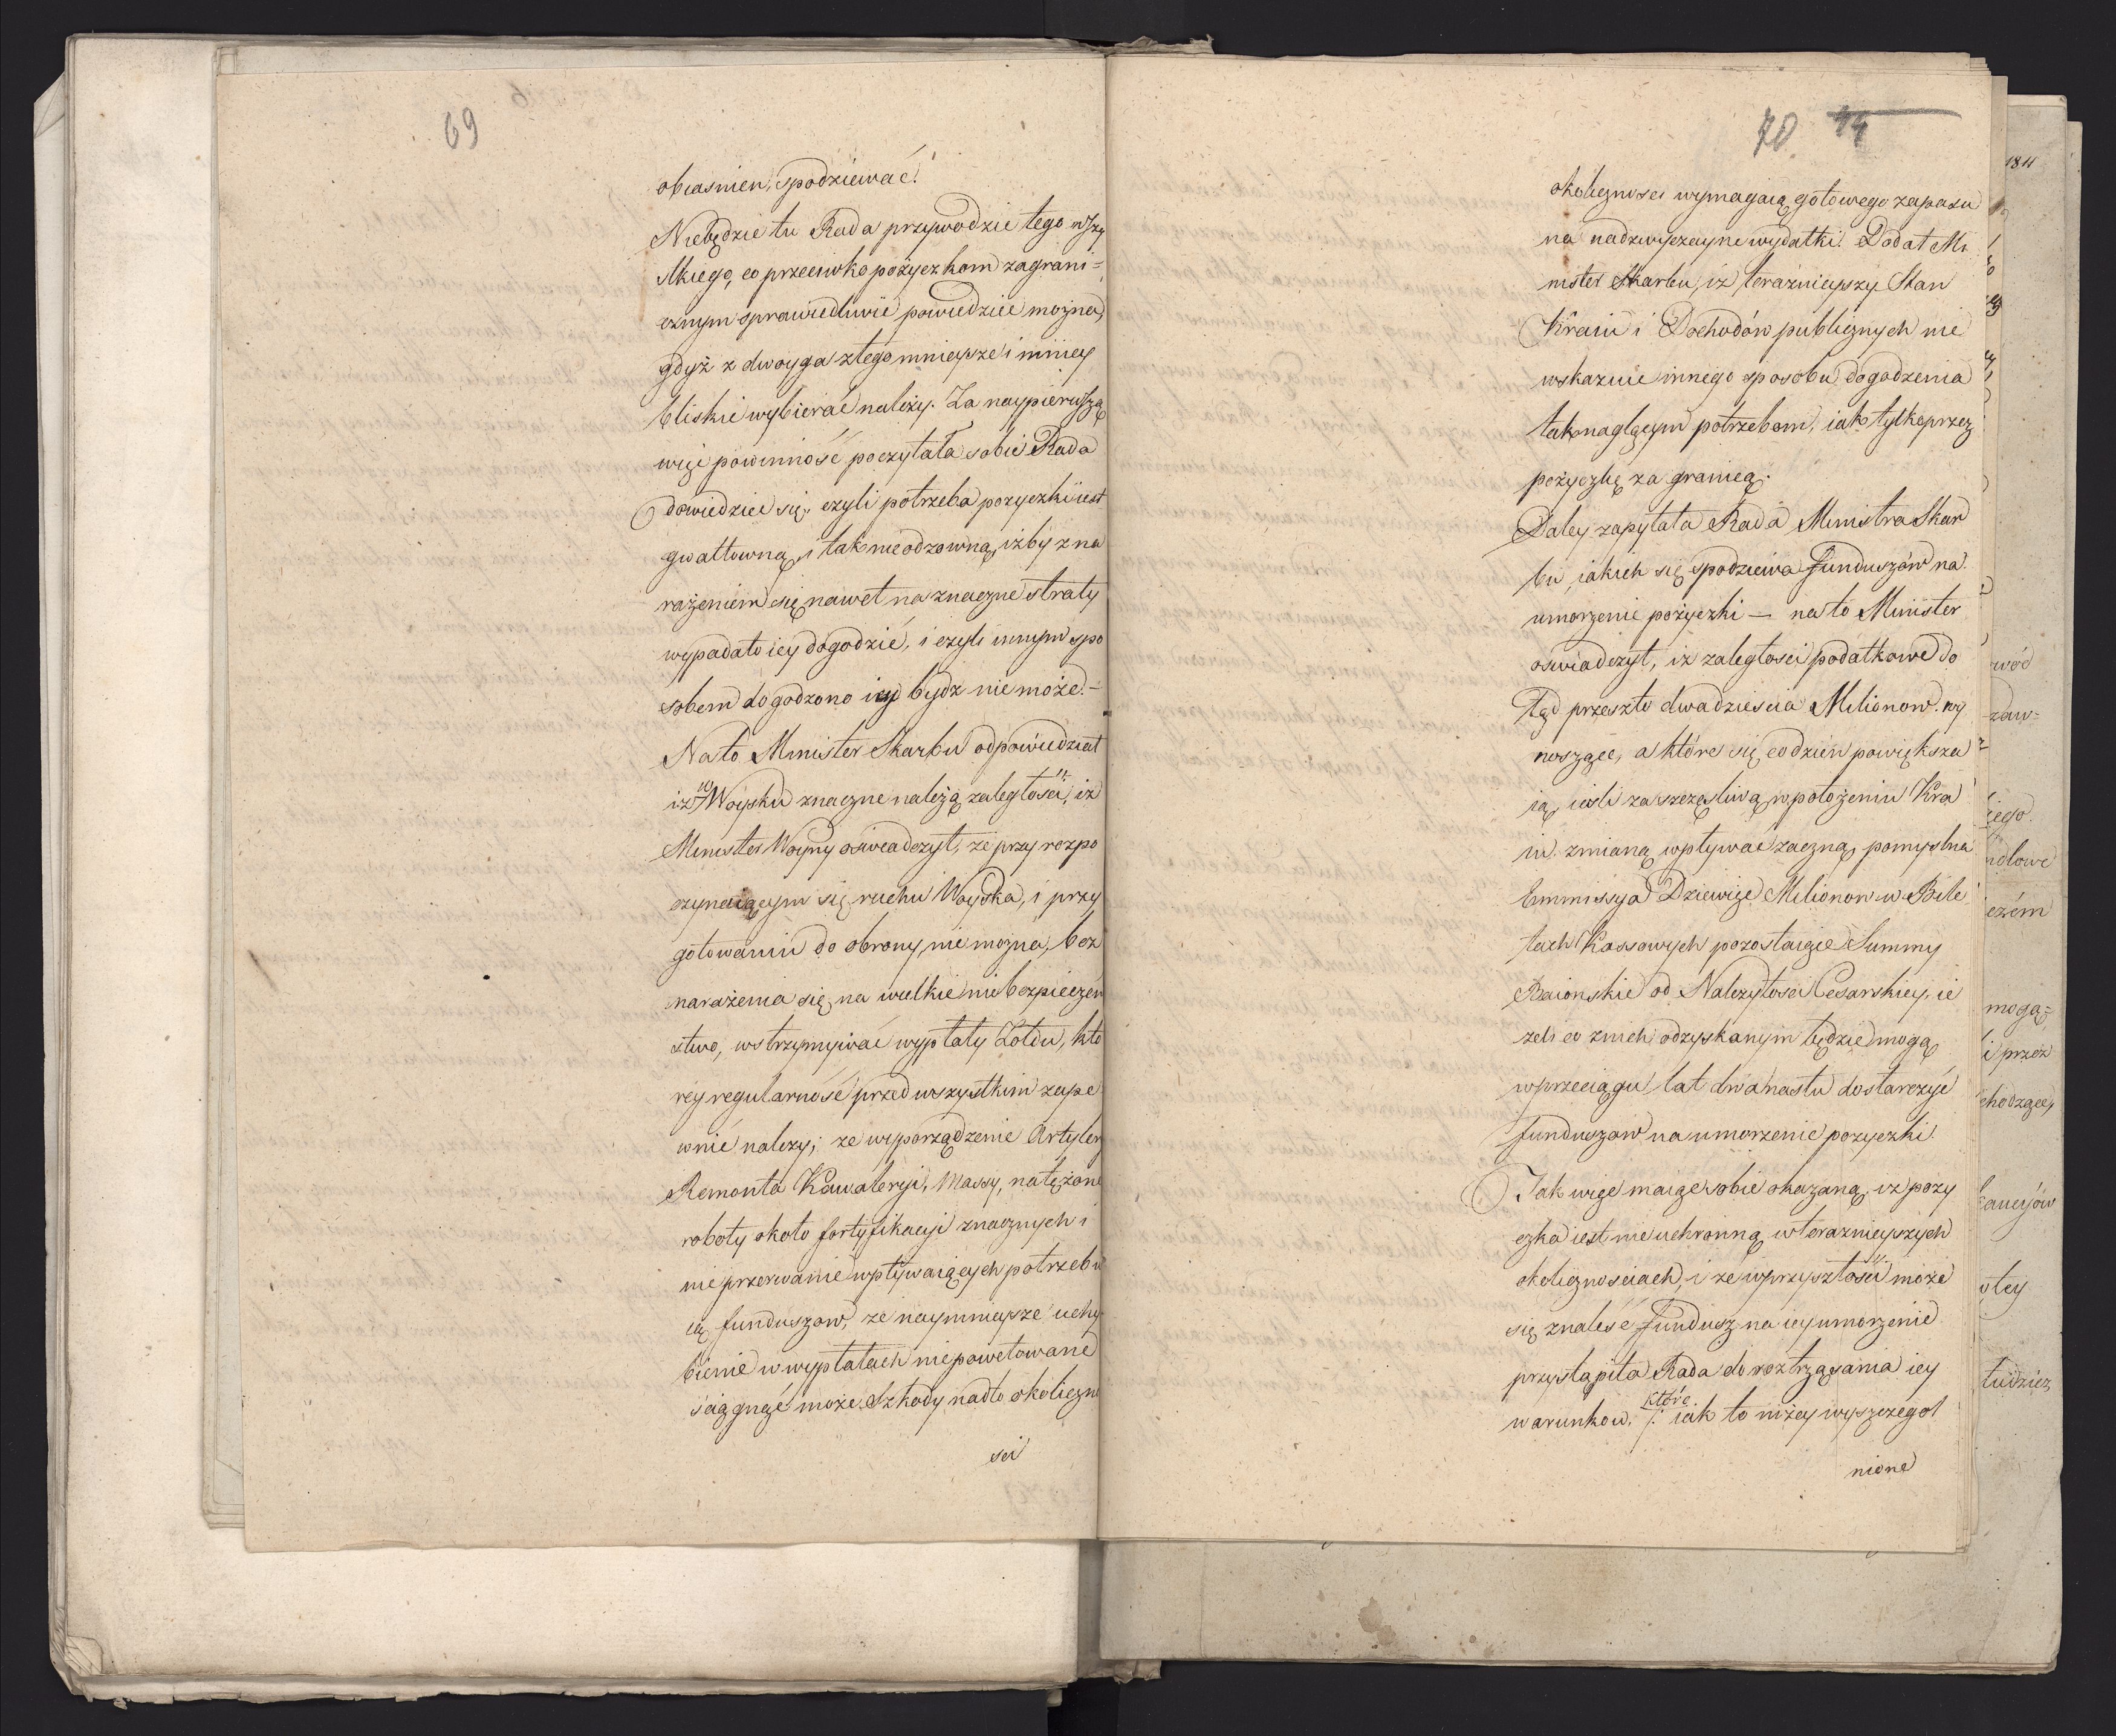 69
obiasnien, spodziewać.
Niebędzie tu Rada przywodzić tego wszy
stkiego, co przeciwko pożyczkom zagrani=
cznym sprawiedliwie powiedzieć można,
gdyż z dwoyga złego mnieysze i mniey
bliskie wybierać należy. Za naypierwszą
więc powinność poczytała sobie Rada
dowiedzieć się, czyli potrzeba pożyczki iest
gwałtowną, i tak nieodzowną, iżby z na
rażeniem się nawet na znaczne straty
wypadało iey dogodzić, i czyli innym spo
sobem dogodzono iey bydz nie może.-
Na to Minister Skarbu odpowiedział
iż Woysku znaczne należą zaległości, iż
Minister Woyny oświadczył, że przy rozpo
czynaiącym się ruchu Woyska, i przy
gotowaniu do obrony, nie można, bez
narażenia się na wielkie niebezpieczeń
stwo, wstrzymywać wypłaty Żołdu, któ
rey regularność przed wszystkim zape
wnić należy; że wyporządzenie Artylery
Remonta Kawaleryi, Massy, natężone
roboty około fortyfikacyi znacznych i
nie przerwanie wpływaiących potrzebu
ią funduszow, że naymnieysze uchy
bienie w wypłatach niepowetowane
ściągnąć może Szkody, nadto okoliczno
sci
70 44
okoliczności wymagaią gotowego zapasu
na nadzwyczayne wydatki. Dodał Mi
nister Skarbu, iż teraźnieyszy Stan
Kraiu i Dochodów publicznych nie
wskazuie innego sposobu dogodzenia
tak naglącym potrzebom, iak tylko przez
pożyczkę za granicą.
Daley zapytała Rada Ministra Skar
bu, iakich się spodziewa Funduszów na
umorzenie pożyczki — na to Minister
oświadczył, iż zaległości podatkowe do
tąd przeszło dwadzieścia Milionow wy
noszące, a które się co dzień powiększa
ią, ieśli za szczęśliwą w położeniu Kra
iu zmianą wpływać zaczną, pomyślna
Emmissya Dziewięc Milionow w Bile
tach Kassowych pozostaiące Summy
Baionskie od Należytosci Cesarskiey, ie
żeli co z nich odzyskanym będzie, mogą
w przeciągu lat dwanastu dostarczyć
funduszow na umorzenie pożyczki.
Tak więc maiąc sobie okazaną, iż poży
czka iest nieuchronną w teraznieyszych
okolicznościach, i że w przyszłości może
się znaleść Fundusz na iey umorzenie
przystąpiła Rada do roztrząsania iey
warunkow, /: które iak to niżey wyszczegól
nione
1811
wód
zaw=
iego
ndlowe
czém
mogą=
i przez
chodzące,
kaucyów
oley
tudzież